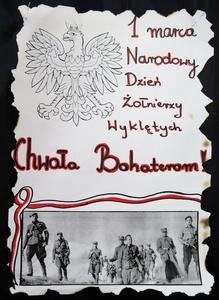 1 marca
Narodowy
Dzień
Żołnierzy
Wyklętych
Chwała Bohaterom!